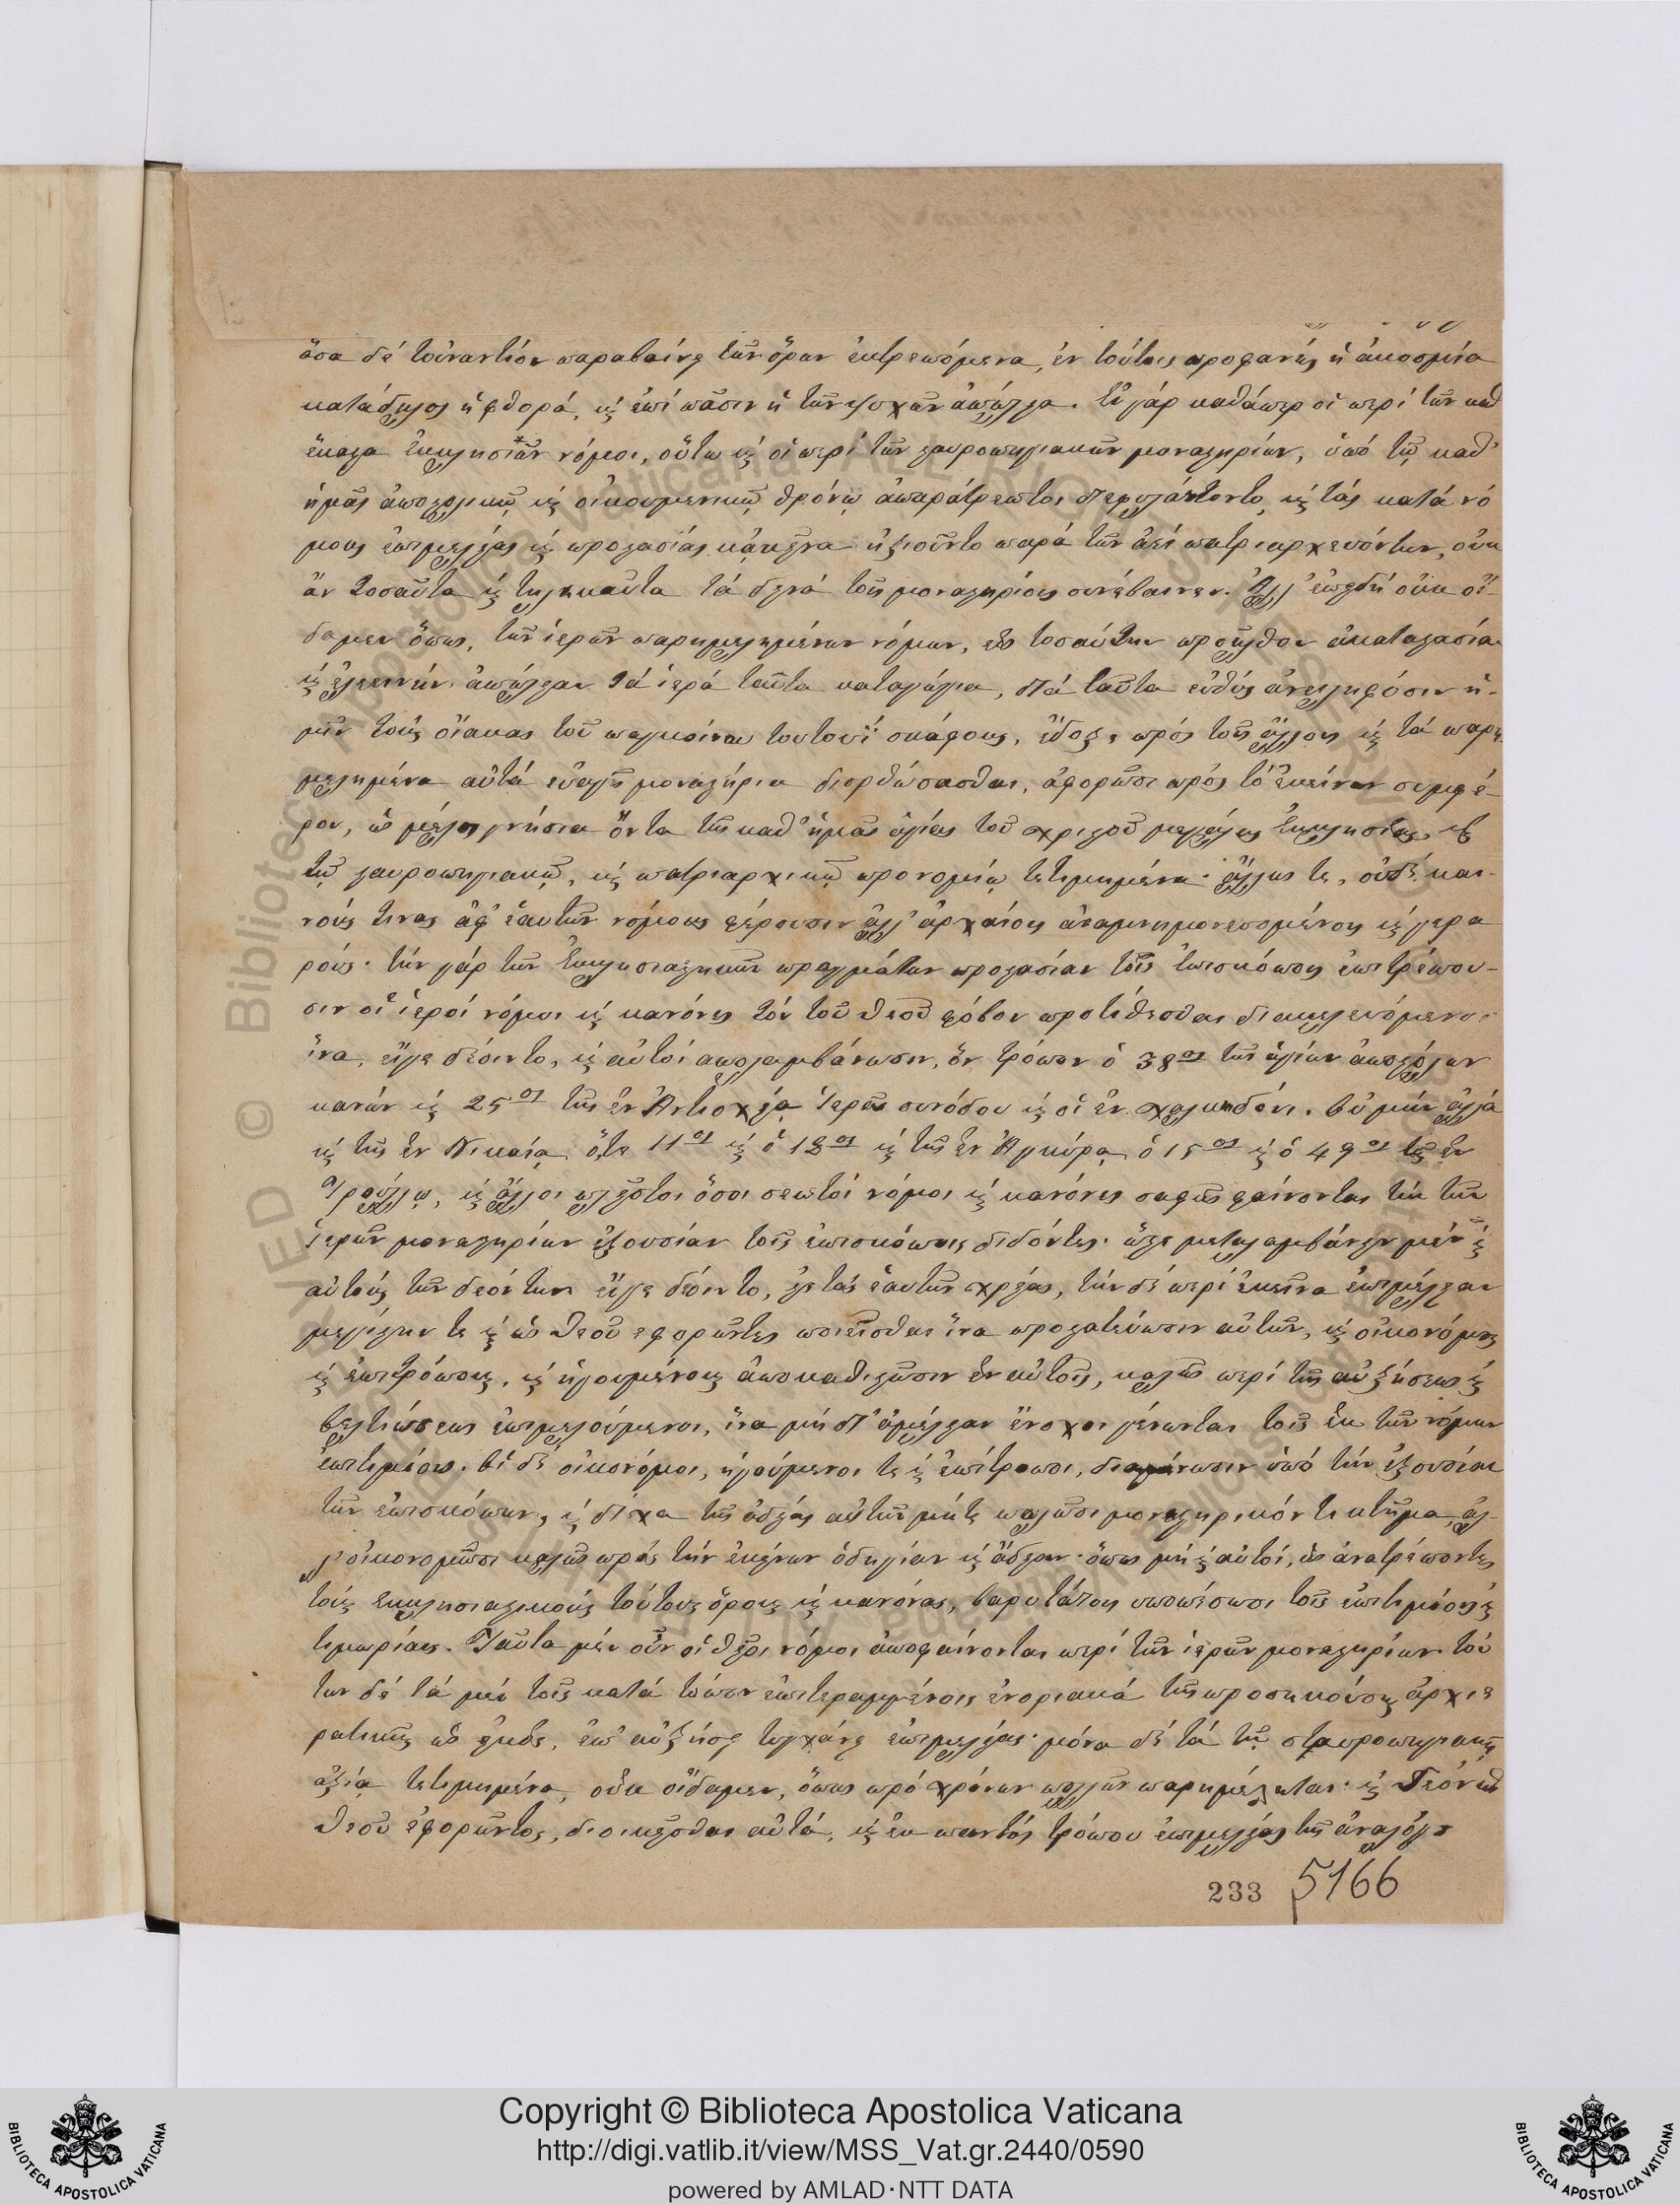 ὅσα δέ τοὐναντίον παραβαίνει τῶν ὅρων ἐκτρεπόμενα, ἐν τούτοις προφανής ἡ ἀκοσμία
κατάδηλος ἡ φθορά, καί ἐπί πᾶσιν ἡ τῶν ψυχῶν ἀπώλεια. Εἰ γάρ καθάπερ οἱ περί τῶν καθ
ἕκαστα ἐκκλησιῶν νόμοι, οὕτω καί οἱ περί τῶν σταυροπηγιακῶν μοναστηρίων, ὑπό τῷ καθ'
ἡμᾶς ἀποστολικῷ καί οἰκουμενικῷ θρόνῳ ἀπαράτρεπτοι διεφυλάττοντο, καί τάς κατά νό
μους ἐπιμελείας καί προστασίας κἀκεῖνα ἠξιοῦντο παρά τῶν ἀεί πατριαρχευόντων, οὐκ
ἄν τοσαῦτα καί τηλικαῦτα τά δεινά τοῖς μοναστηρίοις συνέβαινεν. Ἀλλ' ἐπειδή οὐκ οἴ-
δαμεν ὅπως, τῶν ἱερῶν παρημελημένων νόμων, εἰς τοσαύτην προῆλθον ἀκαταστασίαν
καί ἐλεεινήν ἀπώλειαν τά ἱερά ταῦτα καταγώγια, διά ταῦτα εὐθύς ἀνειληφόσιν ἡ-
μῖν τούς οἴακας τοῦ παγκοίνου τουτουΐ σκάφους, ἔδοξε πρός τοῖς ἄλλοις καί τά παρη
μελημένα αὐτά εὐαγῆ μοναστήρια διορθώσασθαι, ἀφορῶσι πρός τό ἐκείνων συμφέ-
ρον, ὡς μέλη γνήσια ὄντα τῆς καθ' ἡμᾶς ἁγίας τοῦ χριστοῦ μεγάλης ἐκκλησίας, καί
τῷ σταυροπηγιακῷ, καί πατριαρχικῷ προνομίῳ τετιμημένα· ἄλλως τε, οὐδέ και-
νούς τινας ἀφ' ἑαυτῶν νόμους φέρουσιν ἀλλ' ἀρχαίοις ἀπομνημονευομένοις καί γερα
ρούς· τήν γάρ τῶν ἐκκλησιαστικῶν πραγμάτων προστασίαν τοῖς ἐπισκόποις ἐπιτρέπου-
σιν οἱ ἱεροί νόμοι καί κανόνες τόν τοῦ Θεοῦ φόβον προτίθεσθαι διακελευόμενοι
ἵνα, εἴγε δέοιντο, καί αὐτοί απολαμβάνωσιν, ὅν τρόπον ὁ 38ος τῶν ἁγίων ἀποστόλων
κανών καί 25ος τῆς ἐν Ἀντιοχείᾳ ἱερᾶς συνόδου καί οἱ ἐν χαλκηδόνι. Οὐ μήν ἀλλά
καί τῆς ἐν Νικαίᾳ ὅ,τε 11ος καί ὁ 12ος καί τῆς ἐν Ἀγκύρᾳ ὁ 15ος καί ὁ 49ος τῆς ἐν
Τρούλλῳ, καί ἄλλοι πλεῖστοι ὅσοι σεπτοί νόμοι καί κανόνες σαφῶς φαίνονται τήν τῶν
ἱερῶν μοναστηρίων ἐξουσίαν τοῖς ἐπισκόποις διδόντες· ὥστε μεταλαμβάνειν μέν καί
αὐτούς τῶν δεόντων εἴγε δέοιντο, εἰς τάς ἑαυτῶν χρείας, τήν δέ περί ἐκεῖνα ἐπιμέλειαν
μεγίστην τε καί ὡς Θεοῦ εφορῶντος ποιεῖσθαι ἵνα προστατεύωσιν αὐτῶν, καί οἰκονόμους
καί ἐπιτρόπους, καί ἡγουμένους ἀποκαθιστῶσιν ἐν αὐτοῖς, καλῶς περί τῆς αὐξήσεως καί
βελτιώσεως ἐπιμελούμενοι, ἵνα μή δι' ἀμέλειαν ἔνοχοι γένωνται τοῖς ἐκ τῶν νόμων
ἐπιτιμίοις. Οἱ δέ οἰκονόμοι, ἡγούμενοι τε καί ἐπίτροποι, διαμένωσιν ὑπό τήν ἐξουσίαν
τῶν ἐπισκόπων, καί δίχα τῆς ἀδείας αὐτῶν μήτε πωλῶσι μοναστηρικόν τι κτῆμα, ἀλ-
λ' οἰκονομῶσι καλῶς πρός τήν ἐκείνων ὁδηγίαν καί ἄδειαν· ὅπως μή καί αὐτοί, ὡς ἀνατρέποντες
τούς ἐκκλησιαστικούς τούτους ὅρους καί κανόνας, βαρυτάτοις υποπέσωσι τοῖς ἐπιτιμίοις καί
τιμωρίαις. Ταῦτα μέν οὖν οἱ θεῖοι νόμοι ἀποφαίνονται περί τῶν ἱερῶν μοναστηρίων· τού
των δέ τά μέν τοῖς κατά τόπον ἐπιτεραμμένοις ἐνοριακά τῆς προσηκούσης ἀρχιε
ρατικῆς ὡς εἰκός, ἐπ' αὐξήσει τυγχάνει ἐπιμελείας· μόνα δέ τά τῇ σταυροπηγιακῇ
ἀξίᾳ τετιμημένα, οὐκ οἴδαμεν, ὅπως πρό χρόνων πολλῶν παρημέληται· καί δεόν ὡς
Θεοῦ ἐφορῶντος, διοικεῖσθαι αὐτά, καί ἐκ παντός τρόπου ἐπιμελείας τῆς ἀναλόγου
233 5166
Copyright © Biblioteca Apostolica Vaticana
http://digi.vatlib.it/view/MSS_Vat.gr.2440/0590
powered by AMLAD·NTT DATA